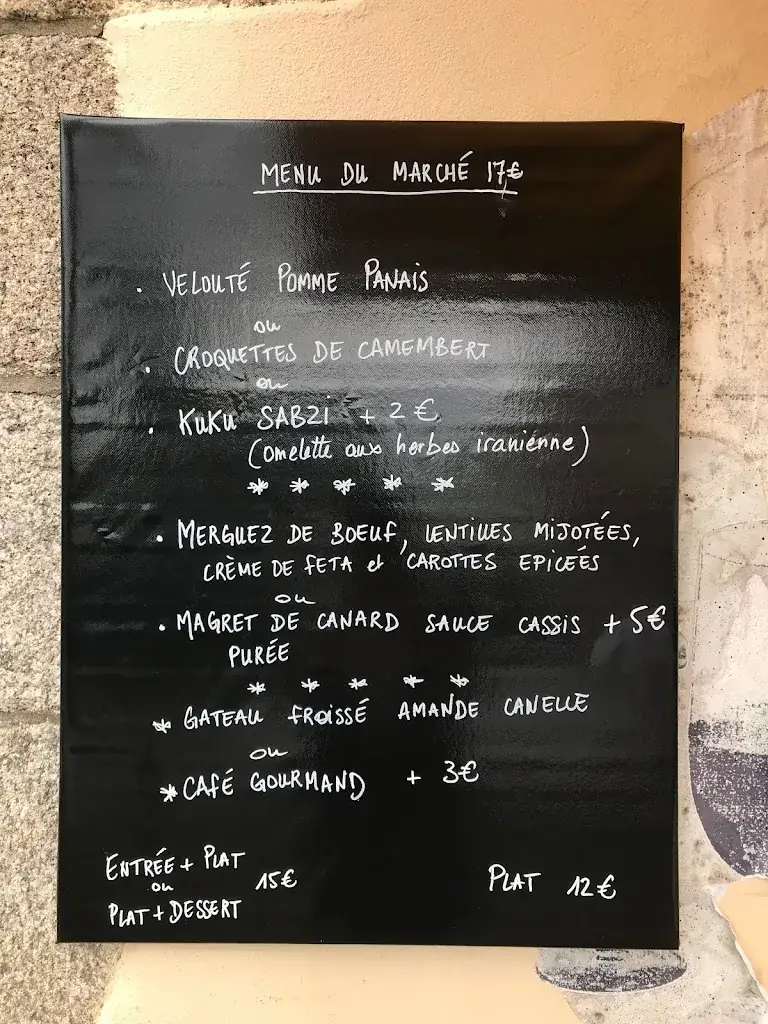 MENU DU MARCHÉ 17€
. VELOUTÉ POMME PANAIS
ou
. CROQUETTES DE CAMEMBERT
ou
. KUKU SABZI + 2€
(omelette aux herbes iraniénne)
* * * * *
. MERGUEZ DE BOEUF, LENTILLES MIJOTÉES,
CRÈME DE FETA et CAROTTES EPICÉÉS
ou
. MAGRET DE CANARD SAUCE CASSIS + 5€
PURÉE
* * * * *
* GATEAU FROISSÉ AMANDE CANELLE
ou
* CAFÉ GOURMAND + 3€
ENTRÉE + PLAT
ou 15€
PLAT + DESSERT
PLAT 12€